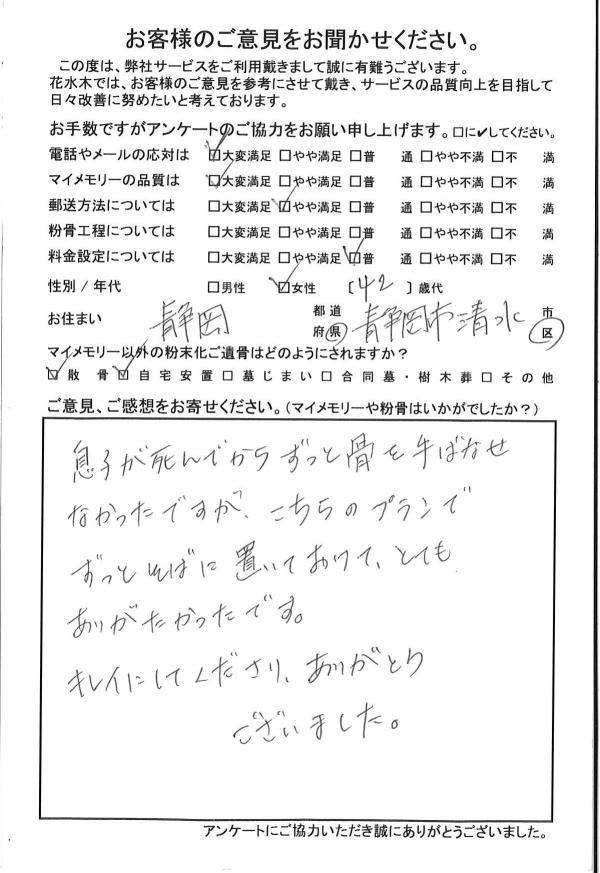 お客様のご意見をお聞かせください。
この度は、弊社サービスをご利用戴きまして誠に有難うございます。
花水木では、お客様のご意見を参考にさせて戴き、サービスの品質向上を目指して
日々改善に努めたいと考えております。
お手数ですがアンケートのご協力をお願い申し上げます。□に✔してください。
電話やメールの応対は ☑大変満足 □やや満足 □普 通 □やや不満 □不 満
マイメモリーの品質は ☑大変満足 □やや満足 □普 通 □やや不満 □不 満
郵送方法については □大変満足 ☑やや満足 □普 通 □やや不満 □不 満
粉骨工程については □大変満足 □やや満足 □普 通 □やや不満 □不 満
料金設定については □大変満足 □やや満足 ☑普 通 □やや不満 □不 満
性別 / 年代 □男性 ☑女性 [ 42 ] 歳代
お住まい 静岡 都道府県 静岡市清水 市区
マイメモリー以外の粉末化ご遺骨はどのようにされますか?
☑散 骨 ☑自宅安置 □墓じまい □合同墓・樹木葬 □その他
ご意見、ご感想をお寄せください。(マイメモリーや粉骨はいかがでしたか?)
息子が死んでからずっと骨を手ばなせ
なかったですが、こちらのプランで
ずっとそばに置いておけて、とても
ありがたかったです。
キレイにしてくださり、ありがとう
ございました。
アンケートにご協力いただき誠にありがとうございました。